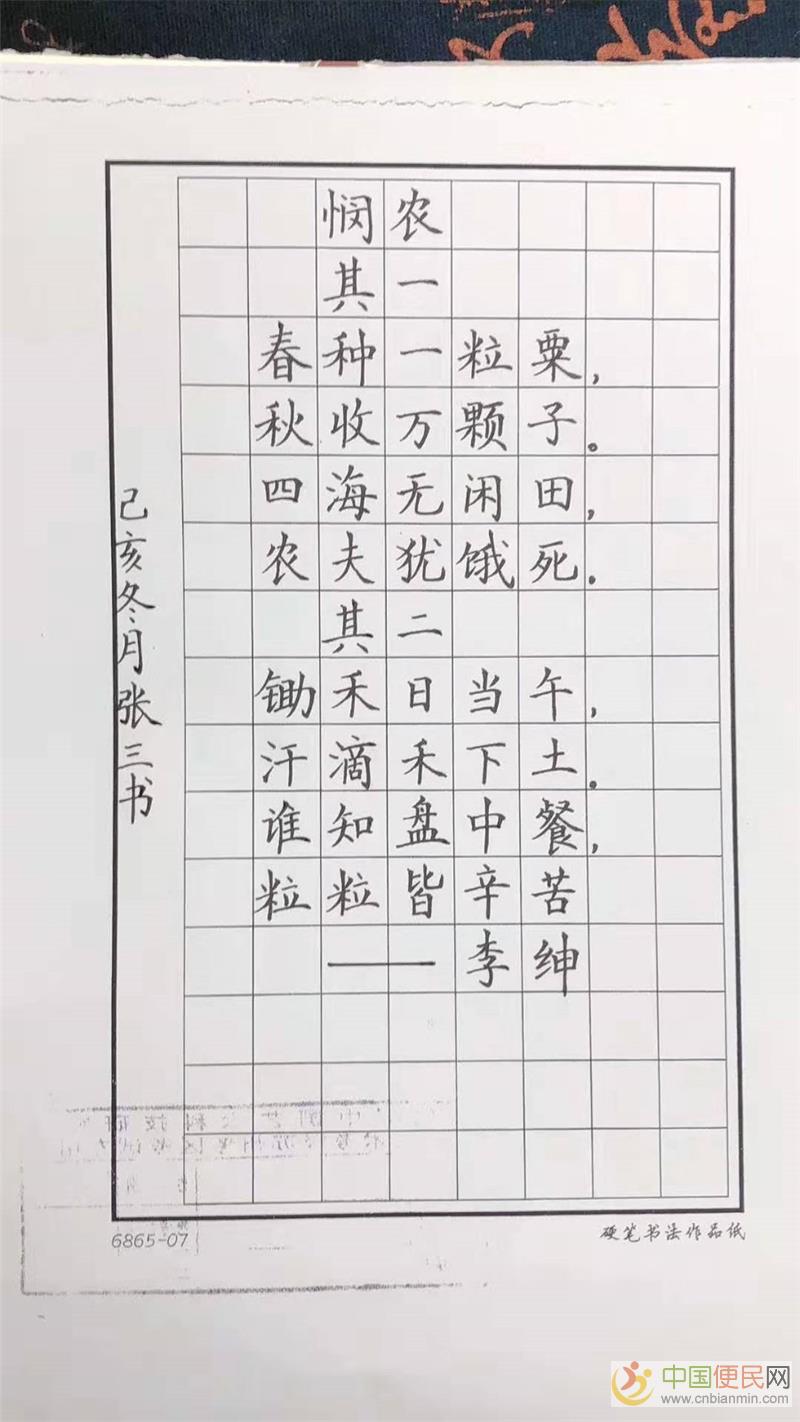 悯农
其一
春种一粒粟，
秋收万颗子。
四海无闲田，
农夫犹饿死.
其二
锄禾日当午，
汗滴禾下土.
谁知盘中餐，
粒粒皆辛苦
——李绅
己亥冬月张三书
6865-07
硬笔书法作品纸
中国便民网
www.cnbianmin.com